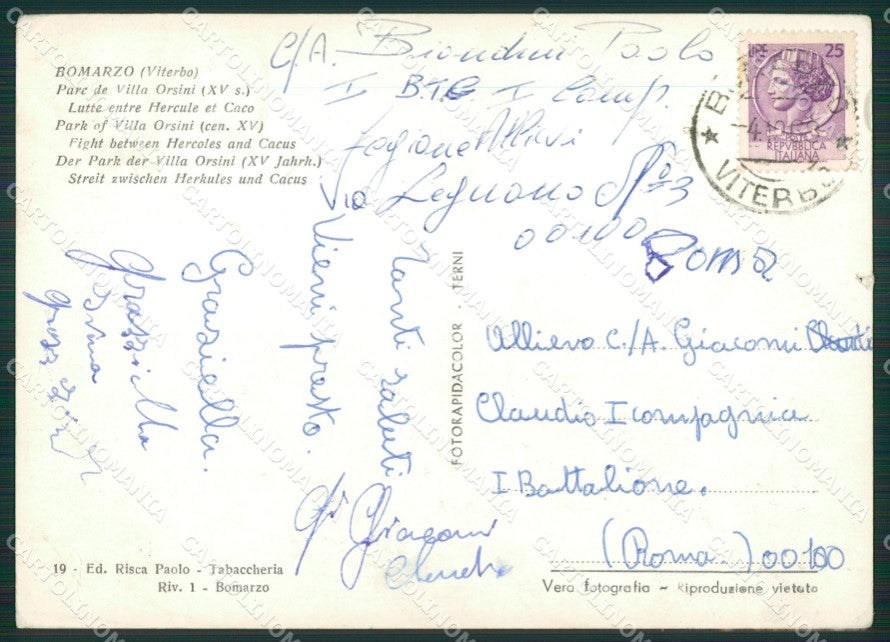 BOMARZO (Viterbo)
Parc de Villa Orsini (XV s.)
Lutte entre Hercule et Caco
Park of Villa Orsini (cen. XV)
Fight between Hercoles and Cacus
Der Park der Villa Orsini (XV Jahrh.)
Streit zwischen Herkules und Cacus
C/A. Biondini Paolo
II BTG I Comp.
Legione Allievi
Via Legnano N° 23
00100 Roma
LIRE 25
POSTE
REPVBBLICA
ITALIANA
VITERBO
Tanti saluti
Vieni presto.
Graziella.
Graziella
Giacomi
FOTORAPIDACOLOR - TERNI
Allievo C/A. Giacomi
Claudio I compagnia
I Battalione.
(Roma) 00100
19 - Ed. Risca Paolo - Tabaccheria
Riv. 1 - Bomarzo
Vera fotografia - Riproduzione vietata
CARTOLINOMANIA